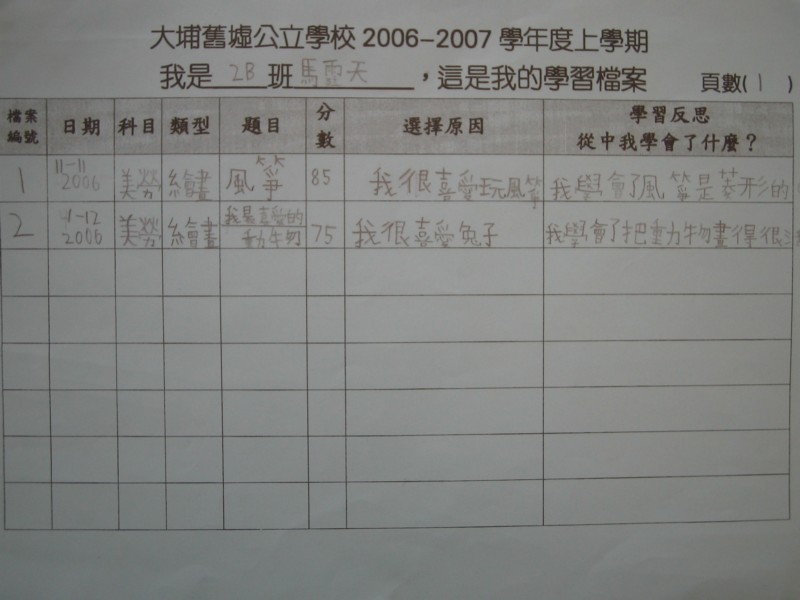 大埔舊墟公立學校 2006-2007 學年度上學期
我是 2B 班 馬雲天 ，這是我的學習檔案 頁數( 1 )
檔案編號 日期 科目 類型 題目 分數 選擇原因 學習反思 從中我學會了什麼？
1 11-11 2006 美勞 繪畫 風箏 85 我很喜愛玩風箏 我學會了風箏是菱形的
2 1-12 2006 美勞 繪畫 我是喜愛的動物 75 我很喜愛兔子 我學會了把動物畫得很